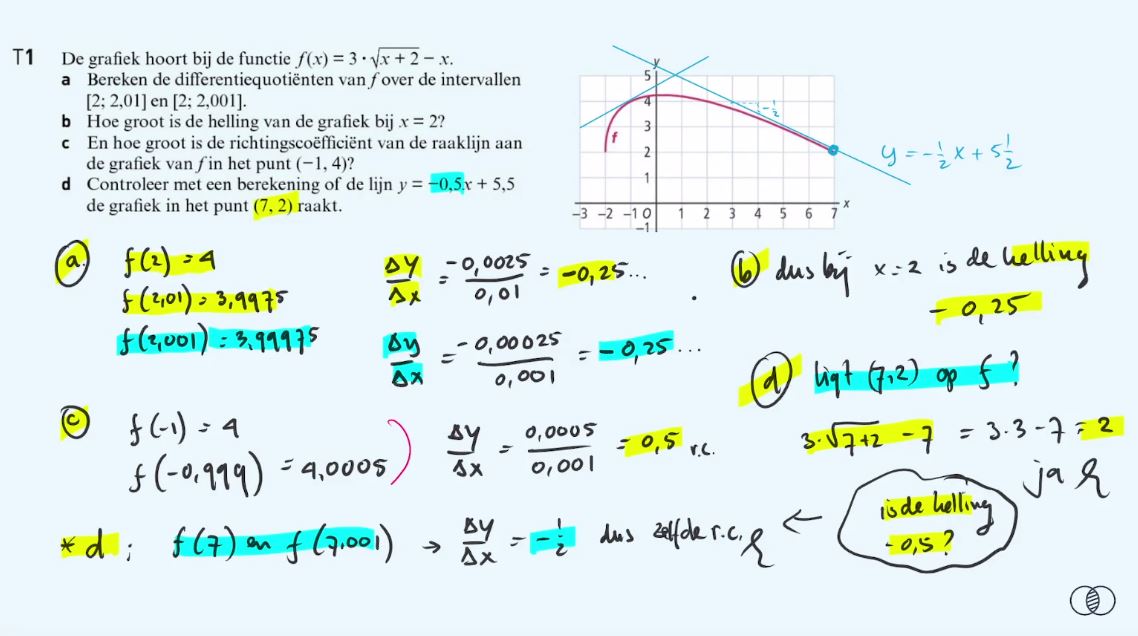 T1 De grafiek hoort bij de functie f(x) = 3 · √x + 2 − x.
a Bereken de differentiequotiënten van f over de intervallen
[2; 2,01] en [2; 2,001].
b Hoe groot is de helling van de grafiek bij x = 2?
c En hoe groot is de richtingscoëfficiënt van de raaklijn aan
de grafiek van f in het punt (−1, 4)?
d Controleer met een berekening of de lijn y = −0,5x + 5,5
de grafiek in het punt (7, 2) raakt.
y
5
4
3
2
1
−3 −2 −1 O 1 2 3 4 5 6 7 x
−1
f
-½
y = -½x + 5½
a. f(2) = 4
f(2,01) = 3,9975
f(2,001) = 3,99975
Δy/Δx = -0,0025/0,01 = -0,25...
Δy/Δx = -0,00025/0,001 = -0,25...
b dus bij x=2 is de helling
-0,25
c f(-1) = 4
f(-0,999) = 4,0005
Δy/Δx = 0,0005/0,001 = 0,5 r.c.
d ligt (7,2) op f?
3·√7+2 - 7 = 3·3-7 = 2
ja
is de helling
-0,5?
* d: f(7) en f(7,001) → Δy/Δx = -½ dus zelfde r.c. ←